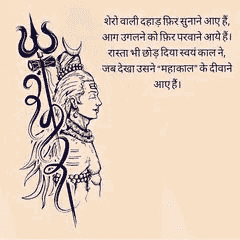 शेरो वाली दहाड़ फ़िर सुनाने आए हैं,
आग उगलने को फ़िर परवाने आये हैं।
रास्ता भी छोड़ दिया स्वयं काल ने,
जब देखा उसने "महाकाल" के दीवाने
आए हैं।